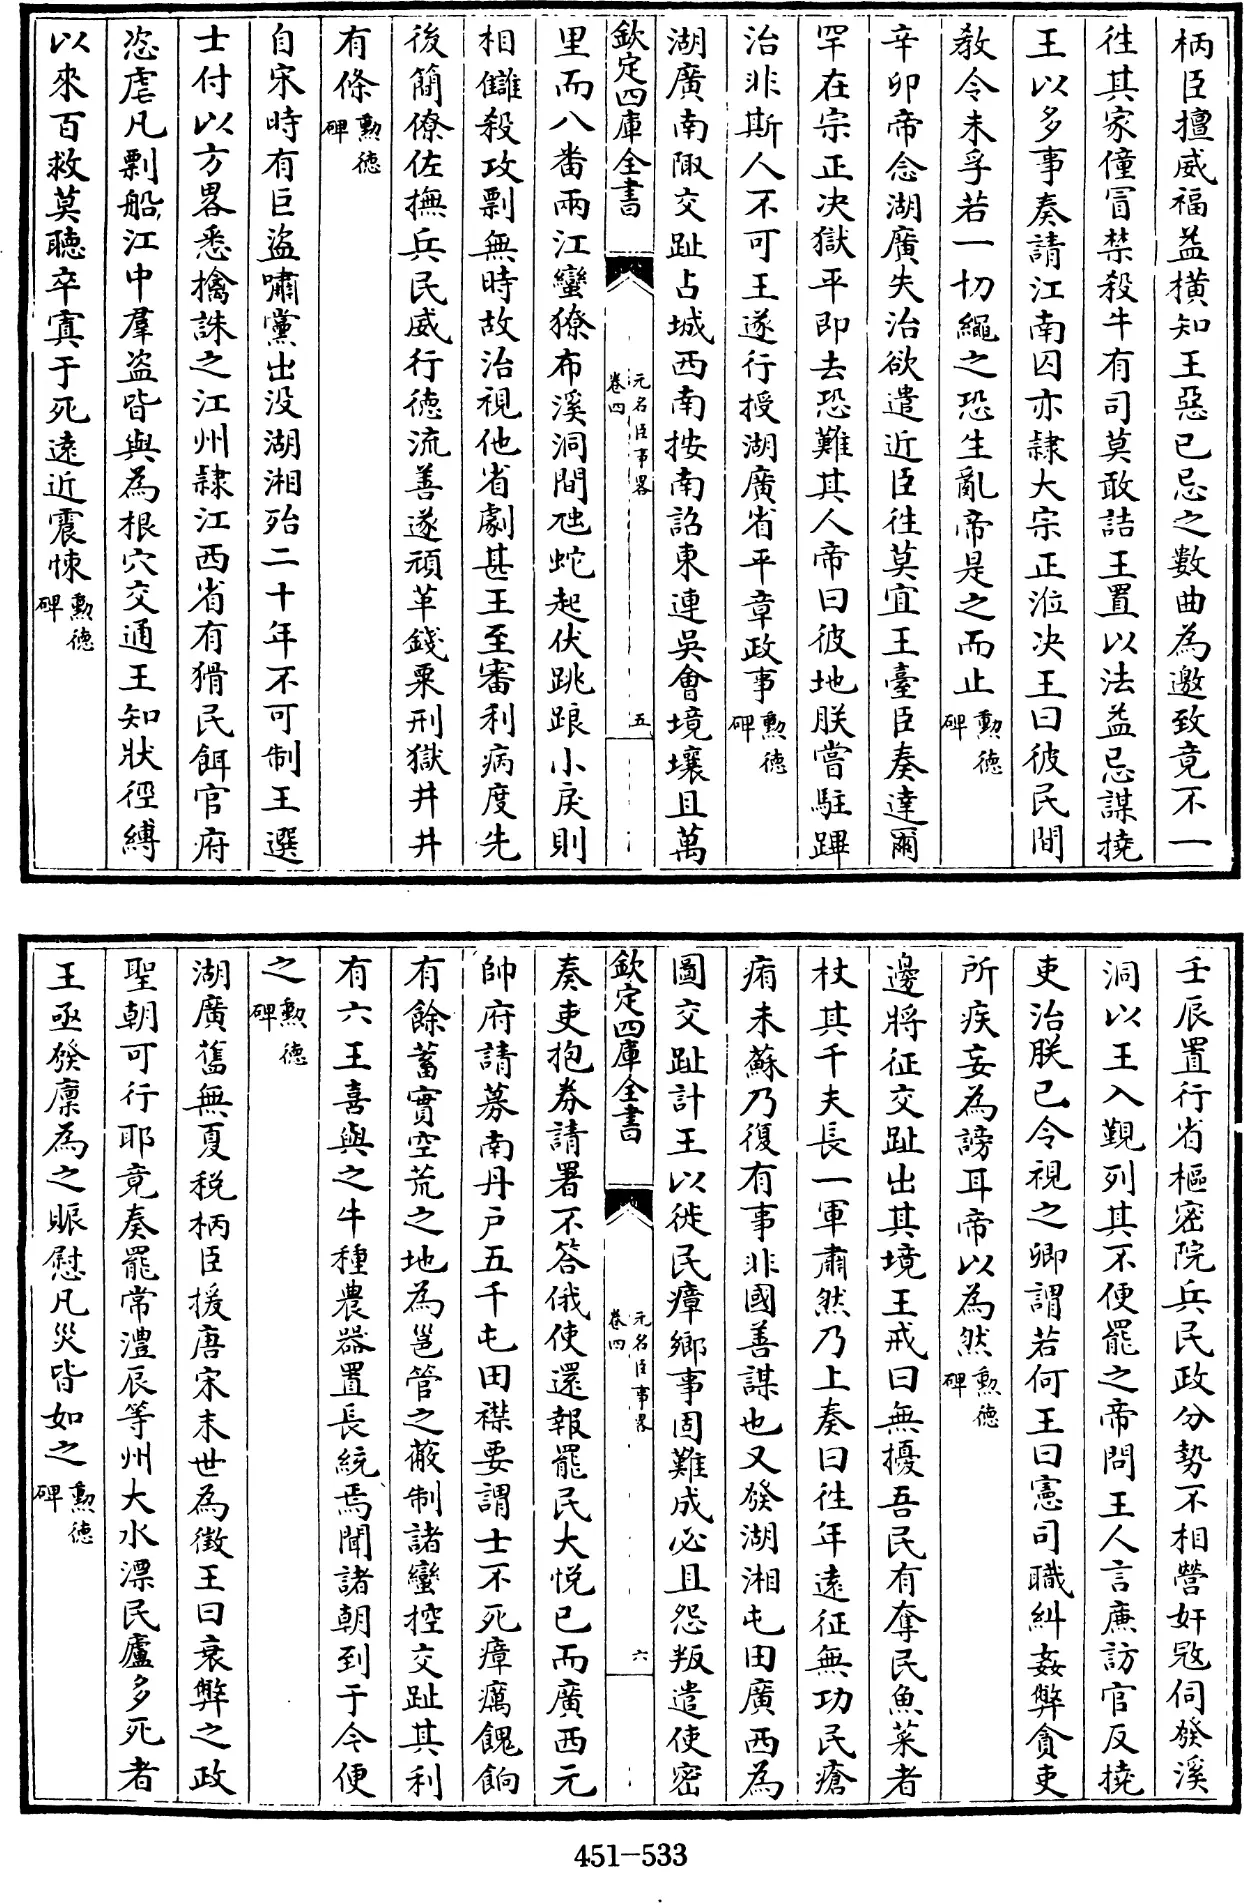 柄臣擅威福益橫知王惡已忌之數曲為邀致竟不一
往其家僮冒禁殺牛有司莫敢詰王置以法益忌謀撓
王以多事奏請江南囚亦隷大宗正涖决王曰彼民間
教令未孚若一切繩之恐生亂帝是之而止勲德碑
辛卯帝念湖廣失治欲遣近臣徃莫宜王臺臣奏達爾
罕在宗正决獄平即去恐難其人帝曰彼地朕嘗駐蹕
治非斯人不可王遂行授湖廣省平章政事勲德碑
湖廣南陬交趾占城西南按南詔東連吳會境壤且萬
欽定四庫全書
元名臣事畧
卷四
五
里而八畨兩江蠻獠布溪洞間虺蛇起伏跳踉小戾則
相讎殺攻剽無時故治視他省劇甚王至審利病度先
後簡僚佐撫兵民威行德流善遂頑革錢粟刑獄井井
有條勲德碑
自宋時有巨盜嘯黨出没湖湘殆二十年不可制王選
士付以方畧悉擒誅之江州隷江西省有猾民餌官府
恣虐凡剽船江中羣盜皆與為根穴交通王知狀徑縛
以來百救莫聽卒寘于死遠近震悚勲德碑
壬辰置行省樞密院兵民政分勢不相營奸㓂伺發溪
洞以王入覲列其不便罷之帝問王人言亷訪官反撓
吏治朕已令視之卿謂若何王曰憲司職糾姦弊貪吏
所疾妄為謗耳帝以為然勲德碑
邊將征交趾出其境王戒曰無擾吾民有奪民魚菜者
杖其千夫長一軍肅然乃上奏曰徃年遠征無功民瘡
痏未蘇乃復有事非國善謀也又發湖湘屯田廣西為
圖交趾計王以徙民瘴鄉事固難成必且怨叛遣使密
欽定四庫全書
元名臣事畧
卷四
六
奏吏抱劵請署不答俄使還報罷民大悅已而廣西元
帥府請募南丹户五千屯田襟要謂士不死瘴癘餽餉
有餘蓄實空荒之地為邕管之蔽制諸蠻控交趾其利
有六王喜與之牛種農器置長統焉聞諸朝到于今便
之勲德碑
湖廣舊無夏税柄臣援唐宋末世為徵王曰衰弊之政
聖朝可行耶竟奏罷常澧辰等州大水漂民廬多死者
王亟發廩為之賑慰凡災皆如之勲德碑
451-533